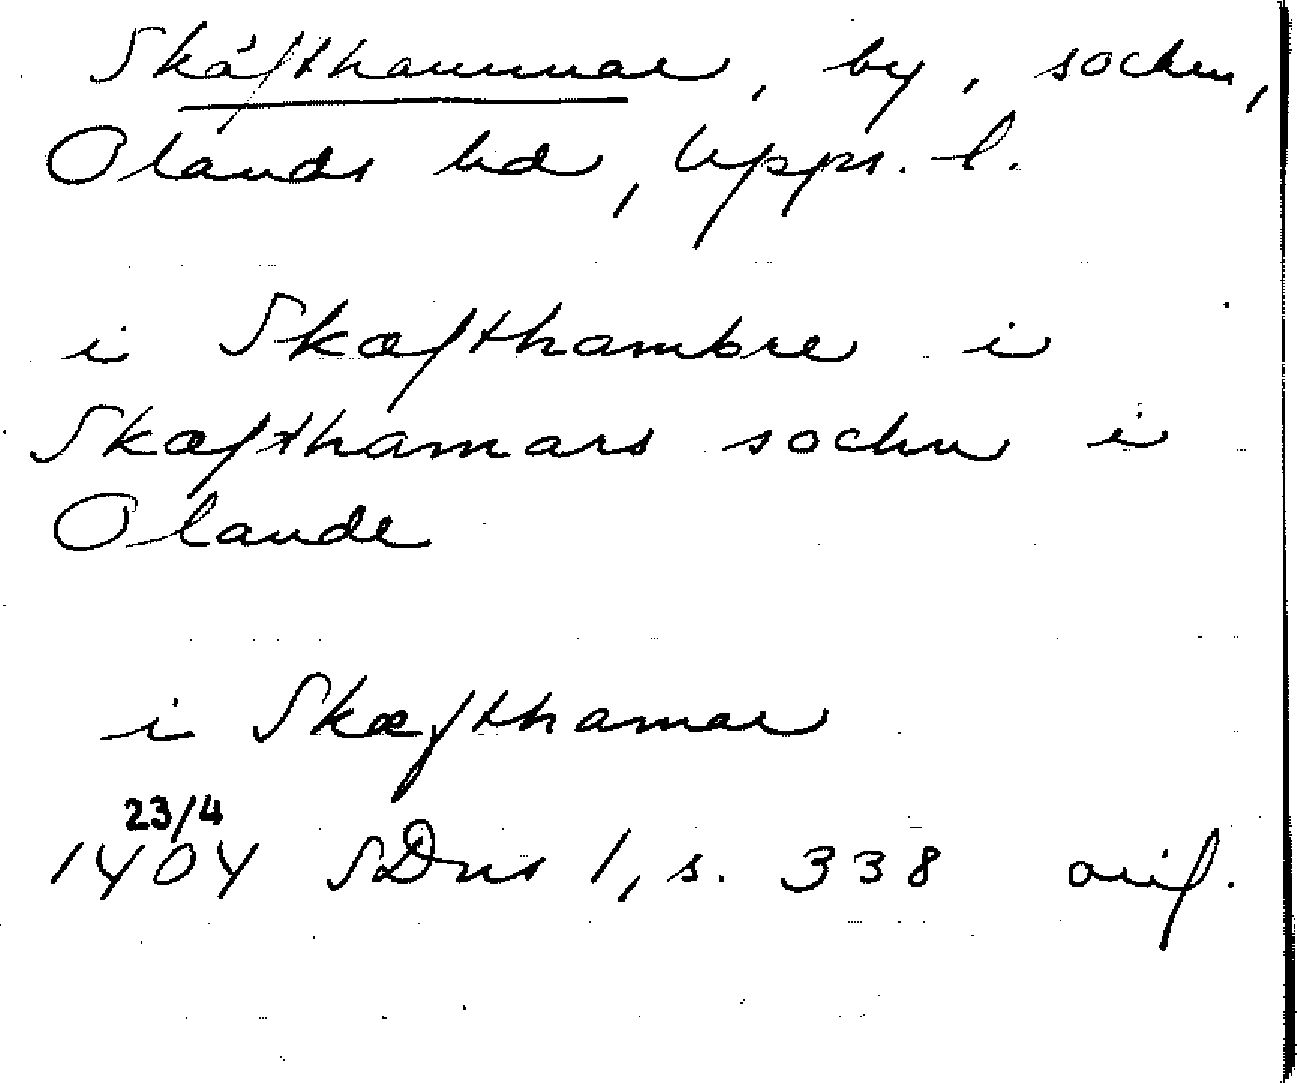 Skäfthammar, by, socken,
Olands hd, Upps. l.
i Skæfthambre i
Skæfthamars sochn i
Olande
i Skæfthamar
23/4
1404 SDns 1, s. 338 orig.